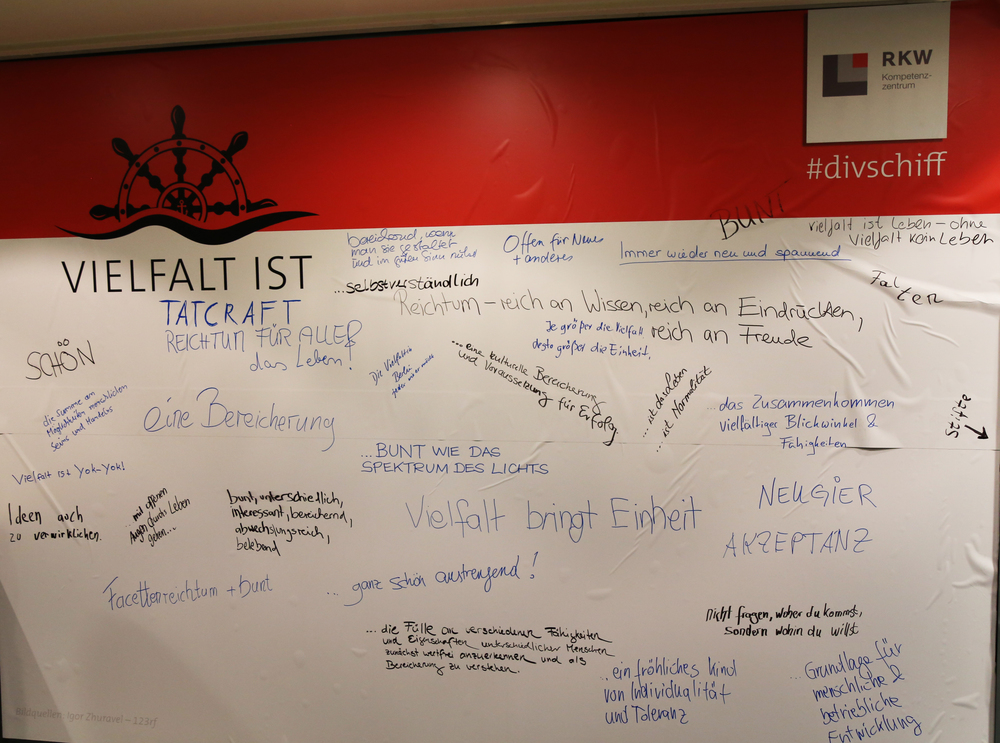 RKW
Kompetenz-
zentrum
#divschiff
VIELFALT IST
TATCRAFT
REICHTUM FÜR ALLE &
das Leben!
bereichernd, wenn
man sie gestaltet
und im guten Sinn nutzt
Offen für Neues
+ anderes
Immer wieder neu und spannend
BUNT
vielfalt ist Leben – ohne
Vielfalt kein Leben
...selbstverständlich
Reichtum – reich an Wissen, reich an Eindrücken,
reich an Freude
Falten
Je größer die Vielfalt
desto größer die Einheit.
SCHÖN
Die Vielfalt in
Berlin
...eine kulturelle Bereicherung
und Voraussetzung für Erfolg
... ist das Leben
ist Normalität
...das Zusammenkommen
vielfältiger Blickwinkel &
Fähigkeiten
Stifte
die Summe an
Möglichkeiten menschlichen
Seins und Handelns
eine Bereicherung
...BUNT WIE DAS
SPEKTRUM DES LICHTS
Vielfalt ist Yok-Yok!
Ideen auch
zu verwirklichen.
...mit offenen
Augen durchs Leben
gehen...
bunt, unterschiedlich,
interessant, bereichernd,
abwechslungsreich,
belebend
Vielfalt bringt Einheit
NEUGIER
AKZEPTANZ
Facettenreichtum + bunt
... ganz schön anstrengend!
... die Fülle an verschiedenen Fähigkeiten
und Eigenschaften unterschiedlicher Menschen
zunächst wertfrei anzuerkennen und als
Bereicherung zu verstehen.
nicht fragen, woher du kommst,
sondern wohin du willst
...ein fröhliches Kind
von Individualität
und Toleranz
...Grundlage für
menschliche &
betriebliche
Entwicklung
Bildquellen: Igor Zhuravel – 123rf